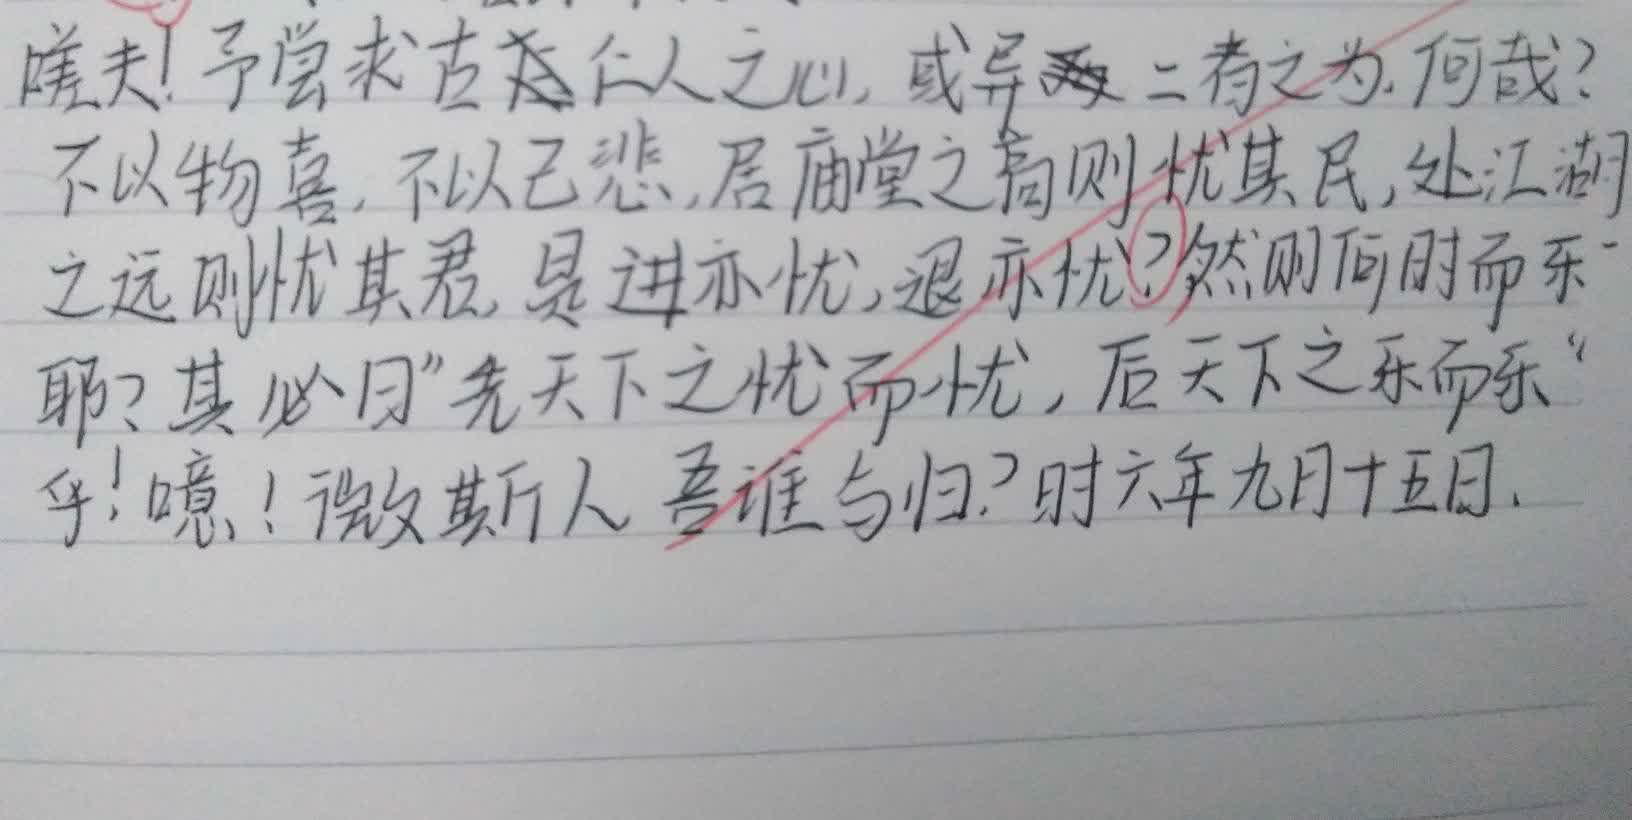 嗟夫！予尝求古仁人之心，或异二者之为，何哉？
不以物喜，不以己悲，居庙堂之高则忧其民，处江湖
之远则忧其君，是进亦忧，退亦忧？然则何时而乐
耶？其必曰”先天下之忧而忧，后天下之乐而乐“
乎！噫！微斯人吾谁与归？时六年九月十五日．